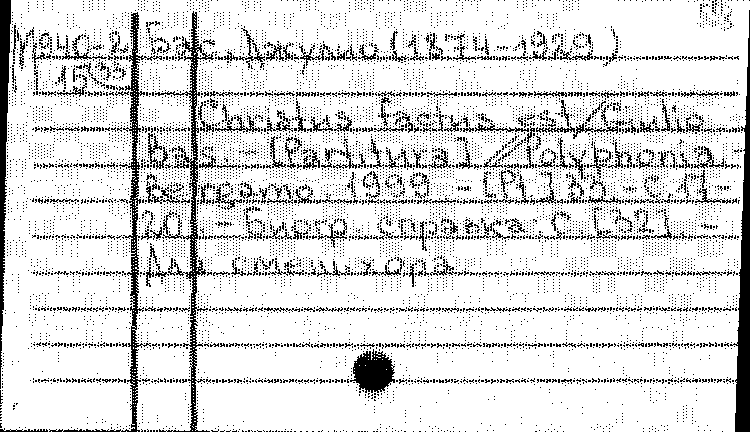 М940-2 Бас, Джулио (1874-1929)
L 15
Christus factus est / Giulio
Bas. - [Partitura] // Polyphonia. -
Bergamo, 1999. - [Pt.] 33. - С. 17-
20. - Биогр. справка: С. [32]. -
Для смеш. хора